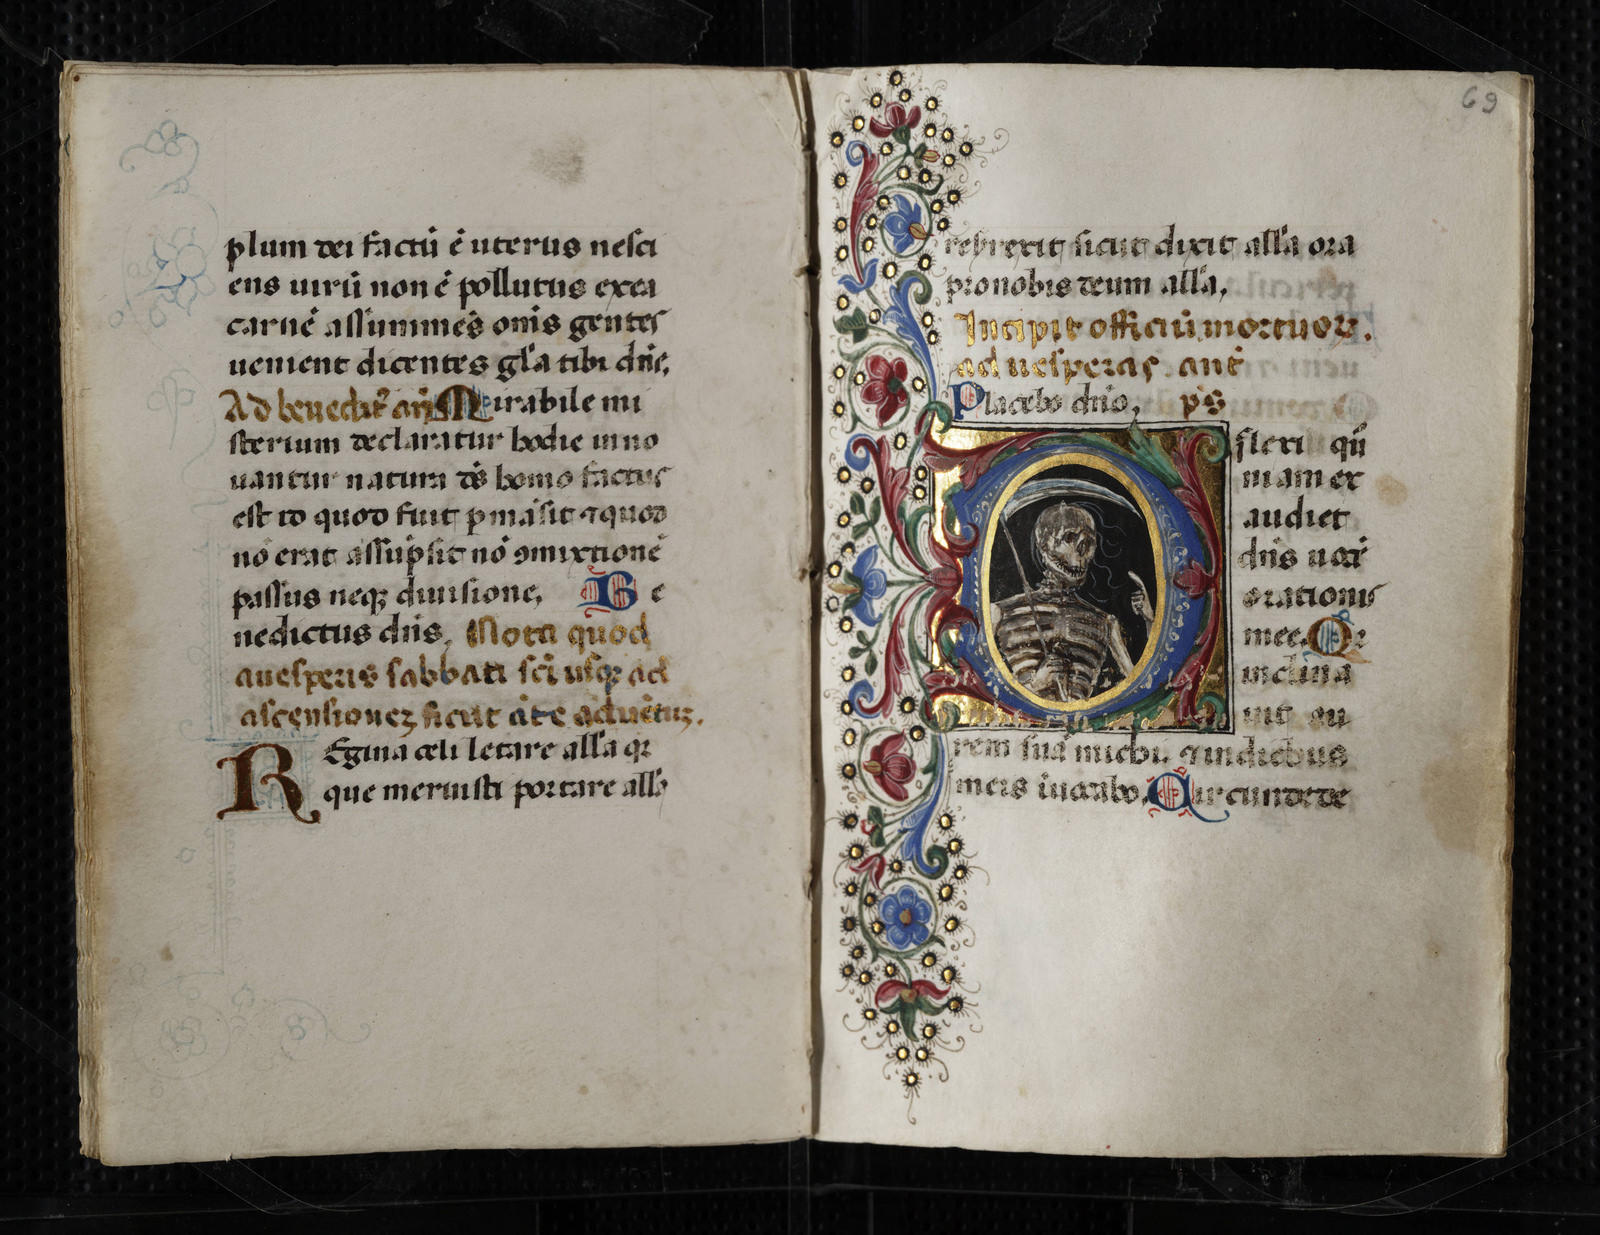 plum dei factū ē uterus nesci
ens uirū non ē pollutus exea
carnē assummēs oм̄s gentes
uenient dicentes gl̄a tibi dn̄e.
Ad benedictꝰ an̄ Mirabile mi
sterium declaratur hodie inno
uantur natura dē homo factus
est id quod fuit pmāsit ⁊quod
nō erat assūpsit nō ꝯmixtionē
passus neqꝫ diuisione. Be
nedictus dn̄s. Nota quod
auesperis sabbati sc̄i usqꝫ ad
ascensionez sicut āte aduētuz.
REgina celi letare all̄a qꝛ
que meruisti portare all̄a
69
resurexit sicut dixit all̄a ora
pronobis deum all̄a.
Incipit officiū mortuoꝝ.
ad uesperas ant̄
Placebo dn̄o. ps̄
Dilexi qn̄
niam ex
audiet
dn̄s uocē
orationis
mee. Qꝛ
inclina
uit au
rem suā michi. ⁊indiebus
meis īuocabo. Circundede